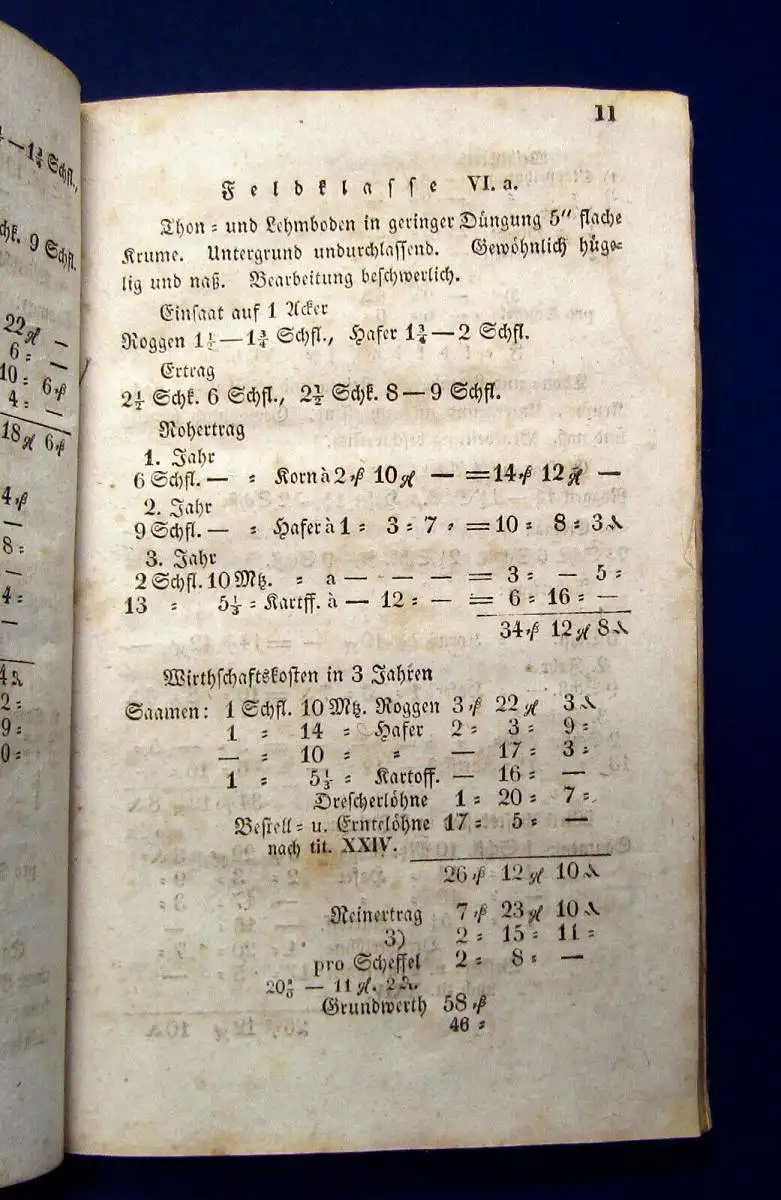 11
Feldklasse VI. a.
Thon= und Lehmboden in geringer Düngung 5" flache
Krume. Untergrund undurchlassend. Gewöhnlich hüge=
lig und naß. Bearbeitung beschwerlich.
Einsaat auf 1 Acker
Roggen 1½—1¾ Schfl., Hafer 1¾—2 Schfl.
Ertrag
2½ Schk. 6 Schfl., 2½ Schk. 8—9 Schfl.
Rohertrag
1. Jahr
6 Schfl. — = Korn à 2 ₰ 10 gl — = 14 ₰ 12 gl —
2. Jahr
9 Schfl. — = Hafer à 1 = 3 = 7 = = 10 = 8 = 3 ₰
3. Jahr
2 Schfl. 10 Mtz. = a — — — = 3 = — 5 =
13 = 5⅓ = Kartff. à — 12 = — = 6 = 16 = —
34 12 8
Wirthschaftskosten in 3 Jahren
Saamen: 1 Schfl. 10 Mtz. Roggen 3 22 3
1 = 14 = Hafer 2 = 3 = 9 =
— = 10 = = — 17 = 3 =
1 = 5⅓ = Kartoff. — 16 = —
Drescherlöhne 1 = 20 = 7 =
Bestell= u. Erntelöhne 17 = 5 = —
nach tit. XXIV.
26 12 10
Reinertrag 7 23 10
3) 2 = 15 = 11 =
pro Scheffel 2 = 8 = —
— 11 gl. 2
Grundwerth 58
46 =
9 Schfl.
22 —
6 = —
10 = 6
4 = —
18 6